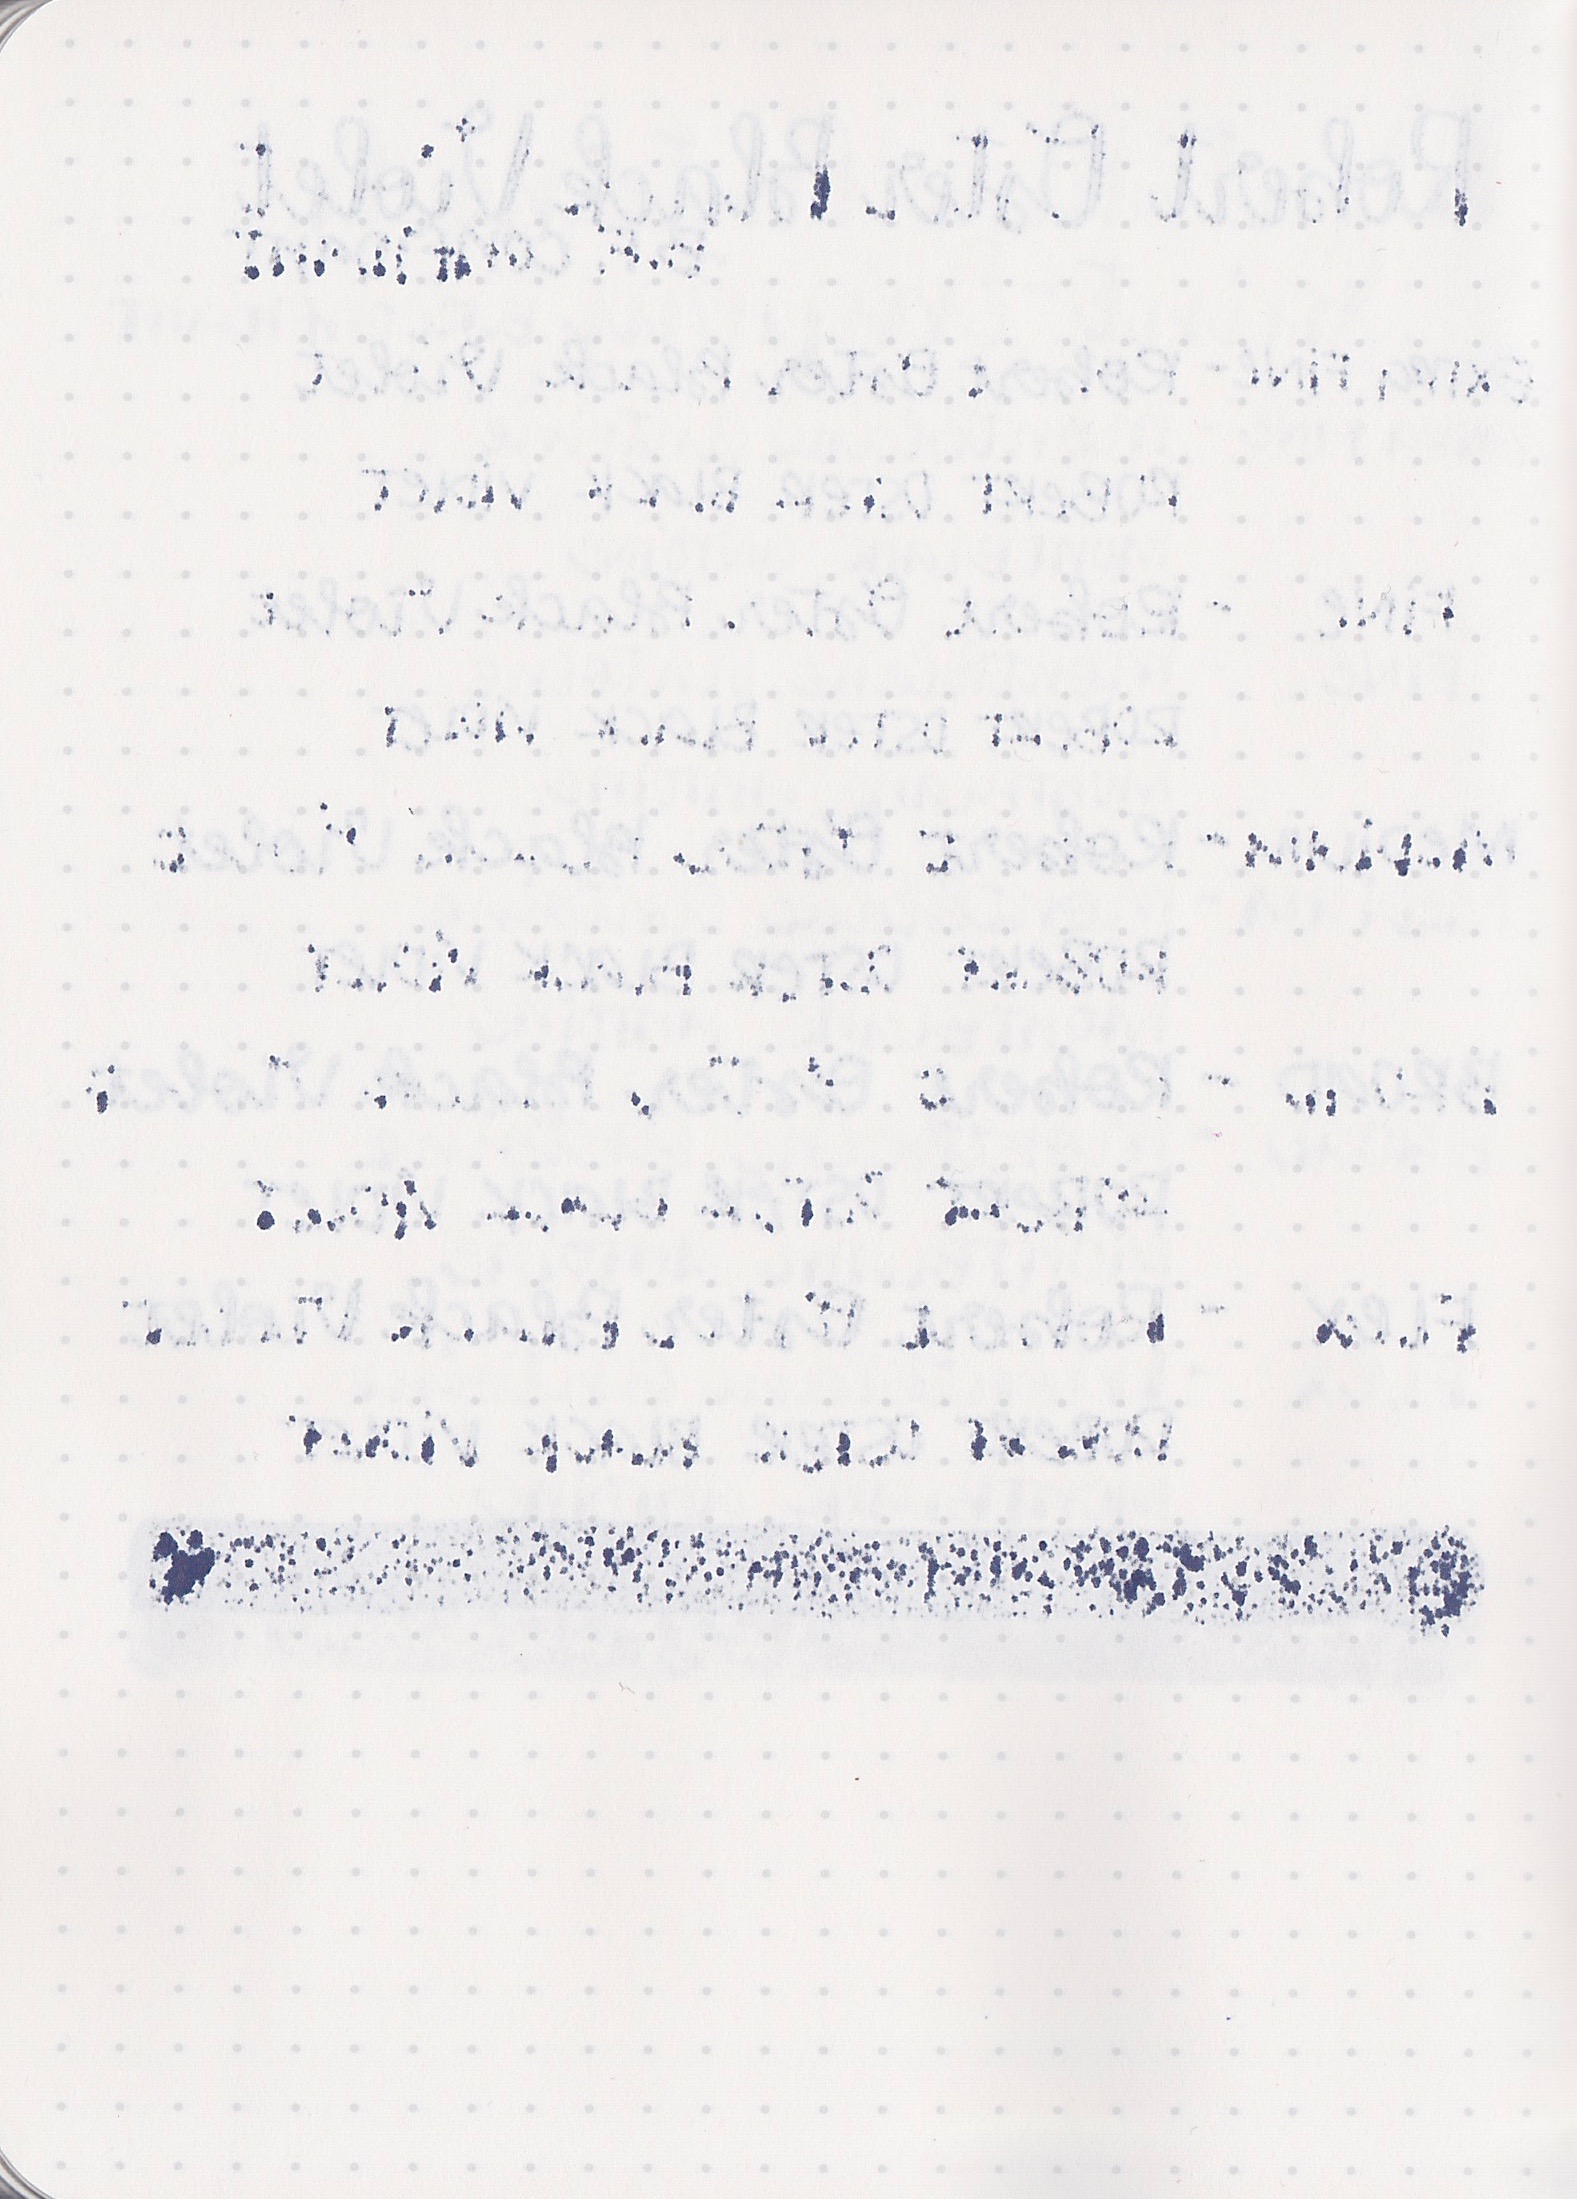 Robert Oster Black Violet
Extra Fine - Robert Oster Black Violet
ROBERT OSTER BLACK VIOLET
Fine - Robert Oster Black Violet
ROBERT OSTER BLACK VIOLET
Medium - Robert Oster Black Violet
ROBERT OSTER BLACK VIOLET
Broad - Robert Oster Black Violet
ROBERT OSTER BLACK VIOLET
Flex - Robert Oster Black Violet
ROBERT OSTER BLACK VIOLET